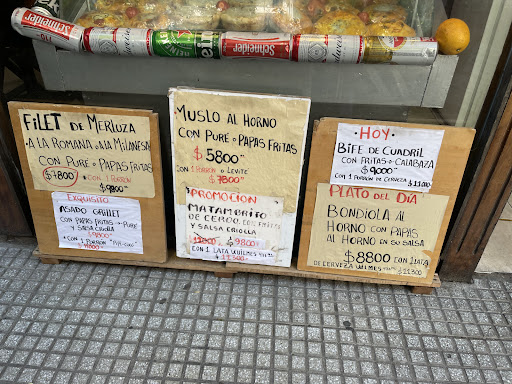 Schneider
Budweiser
Heineken
Schneider
Budweiser
FiLET de MERLUZA
A LA ROMANA o A LA MILANESA
CON PURÉ o PAPAS FRITAS
$7800
CON 1 PORRÓN
$9800
EXQUISITO
ASADO GRILLET
CON PAPAS FRITAS o PURÉ
Y SALSA CRIOLLA
$9800
CON 1 PORRÓN
MUSLO AL HORNO
CON PURÉ o PAPAS FRITAS
$5800
CON 1 PORRÓN o LEVITÉ
$7800
PROMOCIÓN
MATAMBRITO
DE CERDO CON FRITAS
Y SALSA CRIOLLA
$9800
CON 1 LATA WILMES
$11300
HOY
BIFE DE CUADRIL
CON FRITAS o CALABAZA
$9000
CON 1 PORRÓN DE CERVEZA $11000
PLATO DEL DÍA
BONDIOLA AL
HORNO CON PAPAS
AL HORNO EN SU SALSA
$8800 CON 1 LATA
DE CERVEZA WILMES $11300